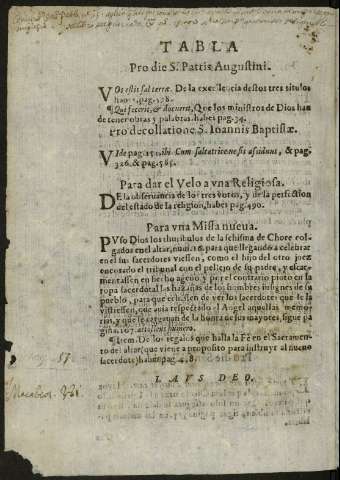 TABLA
Pro die S. Patris Augustini.
VOs estis sal terræ. De la excelencia destos tres titulos
habes, pag. 178.
¶ Qui fecerit, & docuerit, Que los ministros de Dios han
de tener obras y palabras. habes pag. 34.
Pro decollatione S. Ioannis Baptistæ.
VIde pag. 151. ibi Cum saltatrice ne sis assiduus, & pag.
326. & pag. 585.
Para dar el Velo a vna Religiosa.
DE la obseruancia de los tres votos, y de la perfection
del estado de la religion, habes pag. 490.
Para vna Missa nueua.
PVso Dios los thuribulos de la schisma de Chore col-
gados en el altar, para que llegando a celebrar
en el sus sacerdotes viessen, como el hijo del otro juez
encorado el tribunal con el pellejo de su padre, y escar-
mentassen en hecho ageno. y por el contrario pinto en la
ropa sacerdotal las hazañas de los hombres insignes de su
pueblo, para que echassen de ver los sacerdotes que se la
vistiessen, que auia respectado el Angel aquellas memo-
rias, y que se de la honra de sus mayores, sigue pa
gina. 107.
¶ Item. De los regalos que halla la Fè en el Sacramen-
to del altar (que viene a proposito para instruyr al nueuo
sacerdote) habes pag. 4,8.
LAVS DEO.
57